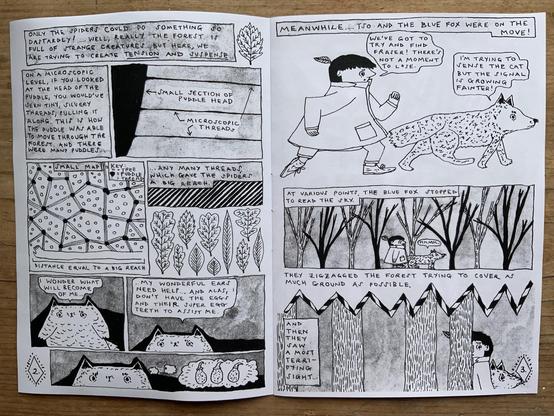 ONLY THE SPIDERS COULD DO SOMETHING SO
DASTARDLY!... WELL, REALLY THE FOREST IS
FULL OF STRANGE CREATURES BUT HERE, WE
ARE TRYING TO CREATE TENSION AND SUSPENSE.
ON A MICROSCOPIC
LEVEL, IF YOU LOOKED
AT THE HEAD OF THE
PUDDLE, YOU WOULD'VE
SEEN TINY, SILVERY
THREADS PULLING IT
ALONG. THIS IS HOW
THE PUDDLE WAS ABLE
TO MOVE THROUGH THE
FOREST. AND THERE
WERE MANY PUDDLES..
SMALL SECTION OF
PUDDLE HEAD
MICROSCOPIC
THREADS
SMALL MAP
KEY
TREE
PUDDLE
DISTANCE EQUAL TO A BIG REACH
...ANY MANY THREADS,
WHICH GAVE THE SPIDERS
A BIG REACH.
WONDER WHAT
WILL BECOME
OF ME..
MY WONDERFUL EARS
NEED HELP... AND ALAS, I
DON'T HAVE THE EGGS
AND THEIR SUPER EGG
TEETH TO ASSIST ME.
2
MEANWHILE....TSO AND THE BLUE FOX WERE ON THE
MOVE!
WE'VE GOT TO
TRY AND FIND
FRAZER! THERE'S
NOT A MOMENT
TO LOSE.
I'M TRYING TO
SENSE THE CAT
BUT THE SIGNAL
IS GROWING
FAINTER!
AT VARIOUS POINTS, THE BLUE FOX STOPPED
TO READ THE SKY.
HMMM.
THEY ZIGZAGGED THE FOREST TRYING TO COVER AS
MUCH GROUND AS POSSIBLE.
AND
THEN
THEY
SAW
A MOST
TERRI-
FYING
SIGHT...
3